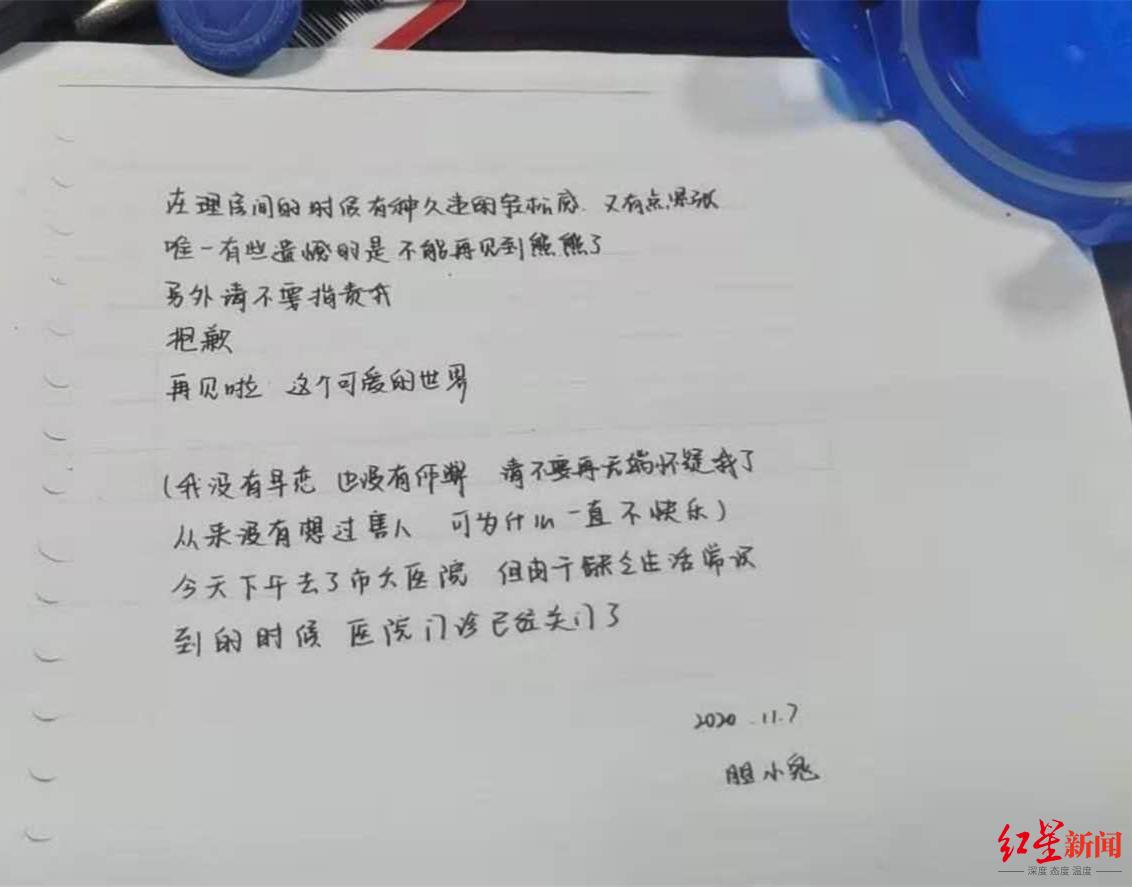 在理房间的时候有种久违的轻松感 又有点紧张
唯一有些遗憾的是 不能再见到熊熊了
另外请不要指责我
抱歉
再见啦 这个可爱的世界
(我没有早恋 也没有作弊 请不要再无端怀疑我了
从来没有想过害人 可为什么一直不快乐)
今天下午去了市大医院 但由于缺乏生活常识
到的时候 医院门诊已经关门了
2020.11.7
胆小鬼
红星新闻
深度 态度 温度